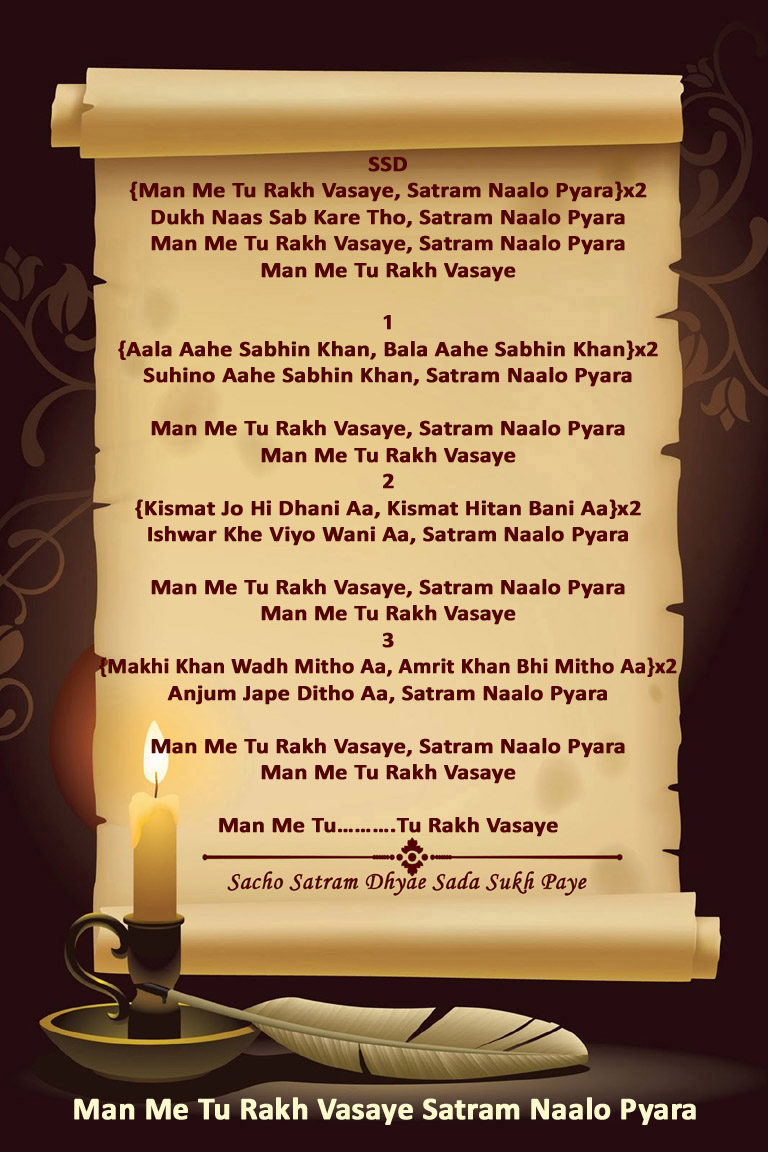 SSD
{Man Me Tu Rakh Vasaye, Satram Naalo Pyara}x2
Dukh Naas Sab Kare Tho, Satram Naalo Pyara
Man Me Tu Rakh Vasaye, Satram Naalo Pyara
Man Me Tu Rakh Vasaye
1
{Aala Aahe Sabhin Khan, Bala Aahe Sabhin Khan}x2
Suhino Aahe Sabhin Khan, Satram Naalo Pyara
Man Me Tu Rakh Vasaye, Satram Naalo Pyara
Man Me Tu Rakh Vasaye
2
{Kismat Jo Hi Dhani Aa, Kismat Hitan Bani Aa}x2
Ishwar Khe Viyo Wani Aa, Satram Naalo Pyara
Man Me Tu Rakh Vasaye, Satram Naalo Pyara
Man Me Tu Rakh Vasaye
3
{Makhi Khan Wadh Mitho Aa, Amrit Khan Bhi Mitho Aa}x2
Anjum Jape Ditho Aa, Satram Naalo Pyara
Man Me Tu Rakh Vasaye, Satram Naalo Pyara
Man Me Tu Rakh Vasaye
Man Me Tu..........Tu Rakh Vasaye
Sacho Satram Dhyae Sada Sukh Paye
Man Me Tu Rakh Vasaye Satram Naalo Pyara